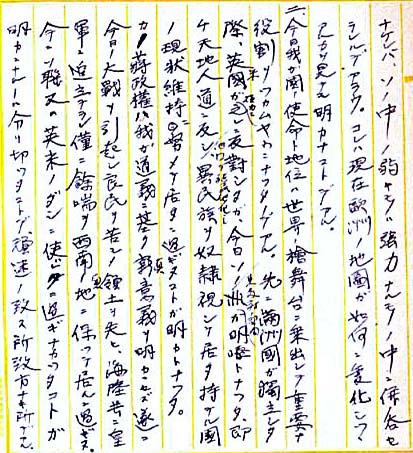 ナケレバ、ソノ中ノ弱キモノハ強力ナルモノノ中ニ併合セ
ラルルデアラウ。コレハ現在欧洲ノ地図ガ如何ニ変化シツツ
アルカ見テモ明カナコトデアル。
二、今日我ガ国ノ使命ト地位ハ世界ノ檜舞台ニ乗出シテ重要ナ
役割ヲツカムヤウニナツタノデアル。先ニ満洲国ガ独立シタ
際、英国ガ之ニ反対シタガ、今日ソノ非ガ明瞭トナツタ、即
チ天地人道ニ反シ、異民族ヲ奴隷視シテ居タ持テル国
ノ現状維持ニ努メテ居タニ過ギヌコトガ明カトナツタ。
カノ蒋政権ハ我ガ道義ニ基ク真意義ヲ明カニセズ遂ニ
今日ノ大戦ヲ引起シ良民ヲ苦シメ領土ヲ失ヒ、海陸共ニ皇
軍ニ追立テラレ僅ニ餘喘ヲ西南ノ地ニ保ツテ居ルニ過ギズ、
今ニシテ聯又ハ英米ノダシニ使ハレタニ過ギナカツタコトガ
明カニナリ分リ切ツタコトデ、頑迷ノ致ス所致方ナキ所デアル。